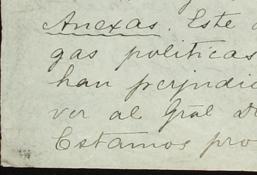 Anexas. Este
gas politicas
han perjudic
ver al Gral
Estamos pro